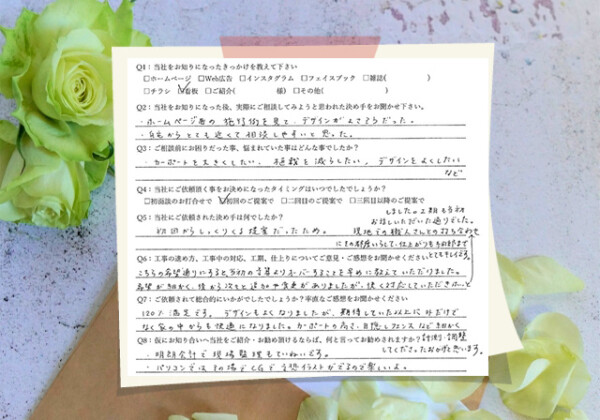 Q1：当社をお知りになったきっかけを教えて下さい
□ホームページ □Web広告 □インスタグラム □フェイスブック □雑誌(　　　)
□チラシ ☑看板 □ご紹介(　　　様) □その他(　　　)
Q2：当社をお知りになった後、実際にご相談してみようと思われた決め手をお聞かせ下さい。
・ホームページ等の施行例を見て、デザインがよさそうだった。
・自宅からとても近くて相談しやすいと思った。
Q3：ご相談前にお困りだった事、悩まれていた事はどんな事でしたか？
・カーポートを大きくしたい、植栽を減らしたい、デザインをよくしたい
など
Q4：当社にご依頼頂く事をお決めになったタイミングはいつでしたでしょうか？
□初面談のお打合せで ☑初回のご提案で □二回目のご提案で □三回目以降のご提案で
Q5：当社にご依頼された決め手は何でしたか？
初回からしっくりくる提案だったため。
しました。工期も当初
お話しいただいた通りでした。
現地での職人さんとの打ち合わせ
とてもキレイです。
Q6：工事の進め方、工事中の対応、工期、仕上りについてご意見・ご感想をお聞かせください
こちらの希望通りにすると当初の予算よりオーバーすることを早めに教えていただけました。
希望が細かく、後から次々と追加や変更がありましたが、快く対応していただき
Q7：ご依頼されて総合的にいかがでしたでしょうか？率直なご感想をお聞かせください
120％満足です。デザインもよくなりましたが、期待していた以上に外だけで
なく家の中からも快適になりました。カーポートの高さ、目隠しフェンスなど細かく
計測・調整
してくださったおかげと思います。
Q8：仮にお知り合いへ当社をご紹介・お勧め頂けるならば、何と言ってお勧めされますか？
・明朗会計で現場整理もていねいです。
・パソコンではその場でCGで予想イラストができるので楽しいよ。